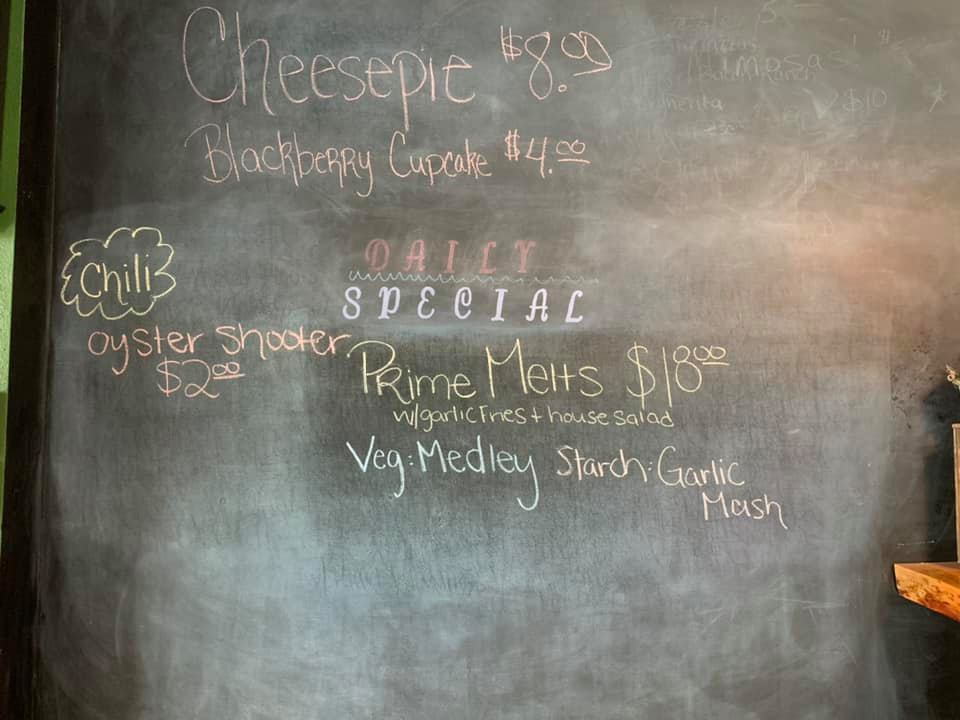 Cheesepie $8.00
Blackberry Cupcake $4.00
Chili
oyster shooter
$2.00
DAILY
SPECIAL
Prime Melts $18.00
w/garlic fries + house salad
Veg: Medley Starch: Garlic
Mash
Mimosa
$10